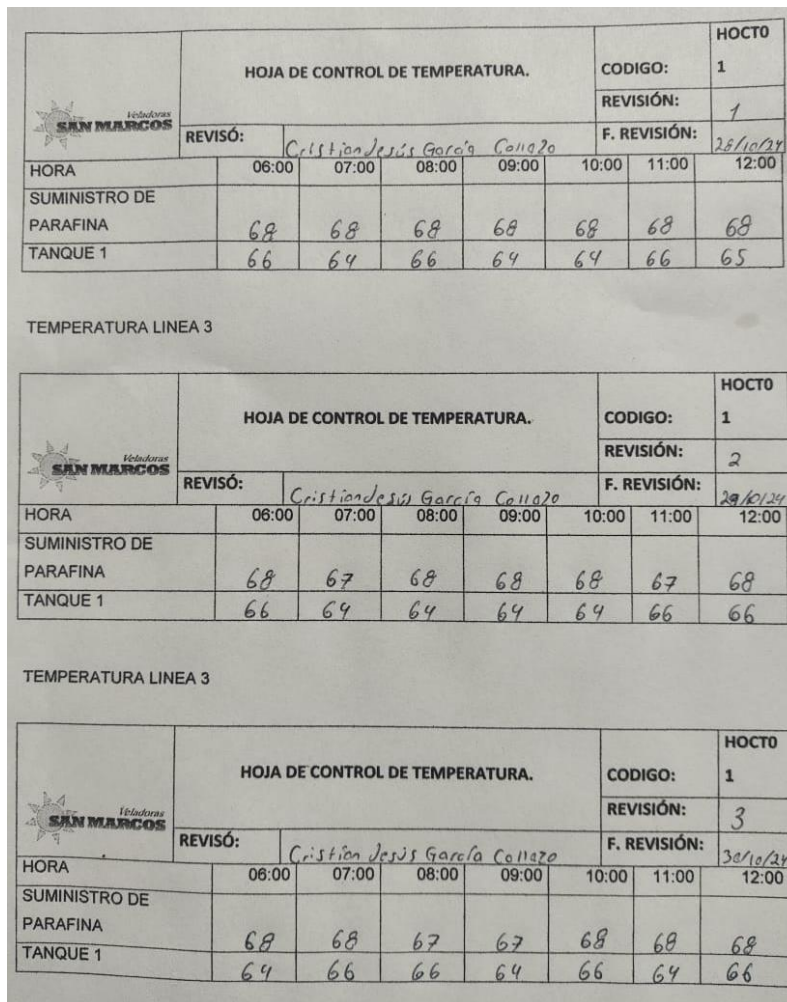 HOCT0
HOJA DE CONTROL DE TEMPERATURA. CODIGO: 1
Veladoras
SAN MARCOS
REVISIÓN: 1
REVISÓ: Cristian Jesús García Collazo F. REVISIÓN: 28/10/24
HORA 06:00 07:00 08:00 09:00 10:00 11:00 12:00
SUMINISTRO DE
PARAFINA 68 68 68 68 68 68 68
TANQUE 1 66 64 66 64 64 66 65
TEMPERATURA LINEA 3
HOCT0
HOJA DE CONTROL DE TEMPERATURA. CODIGO: 1
Veladoras
SAN MARCOS
REVISIÓN: 2
REVISÓ: Cristian Jesús García Collazo F. REVISIÓN: 29/10/24
HORA 06:00 07:00 08:00 09:00 10:00 11:00 12:00
SUMINISTRO DE
PARAFINA 68 67 68 68 68 67 68
TANQUE 1 66 64 64 64 64 66 66
TEMPERATURA LINEA 3
HOCT0
HOJA DE CONTROL DE TEMPERATURA. CODIGO: 1
Veladoras
SAN MARCOS
REVISIÓN: 3
REVISÓ: Cristian Jesús García Collazo F. REVISIÓN: 30/10/24
HORA 06:00 07:00 08:00 09:00 10:00 11:00 12:00
SUMINISTRO DE
PARAFINA 68 68 67 67 68 68 68
TANQUE 1 64 66 66 64 66 64 66